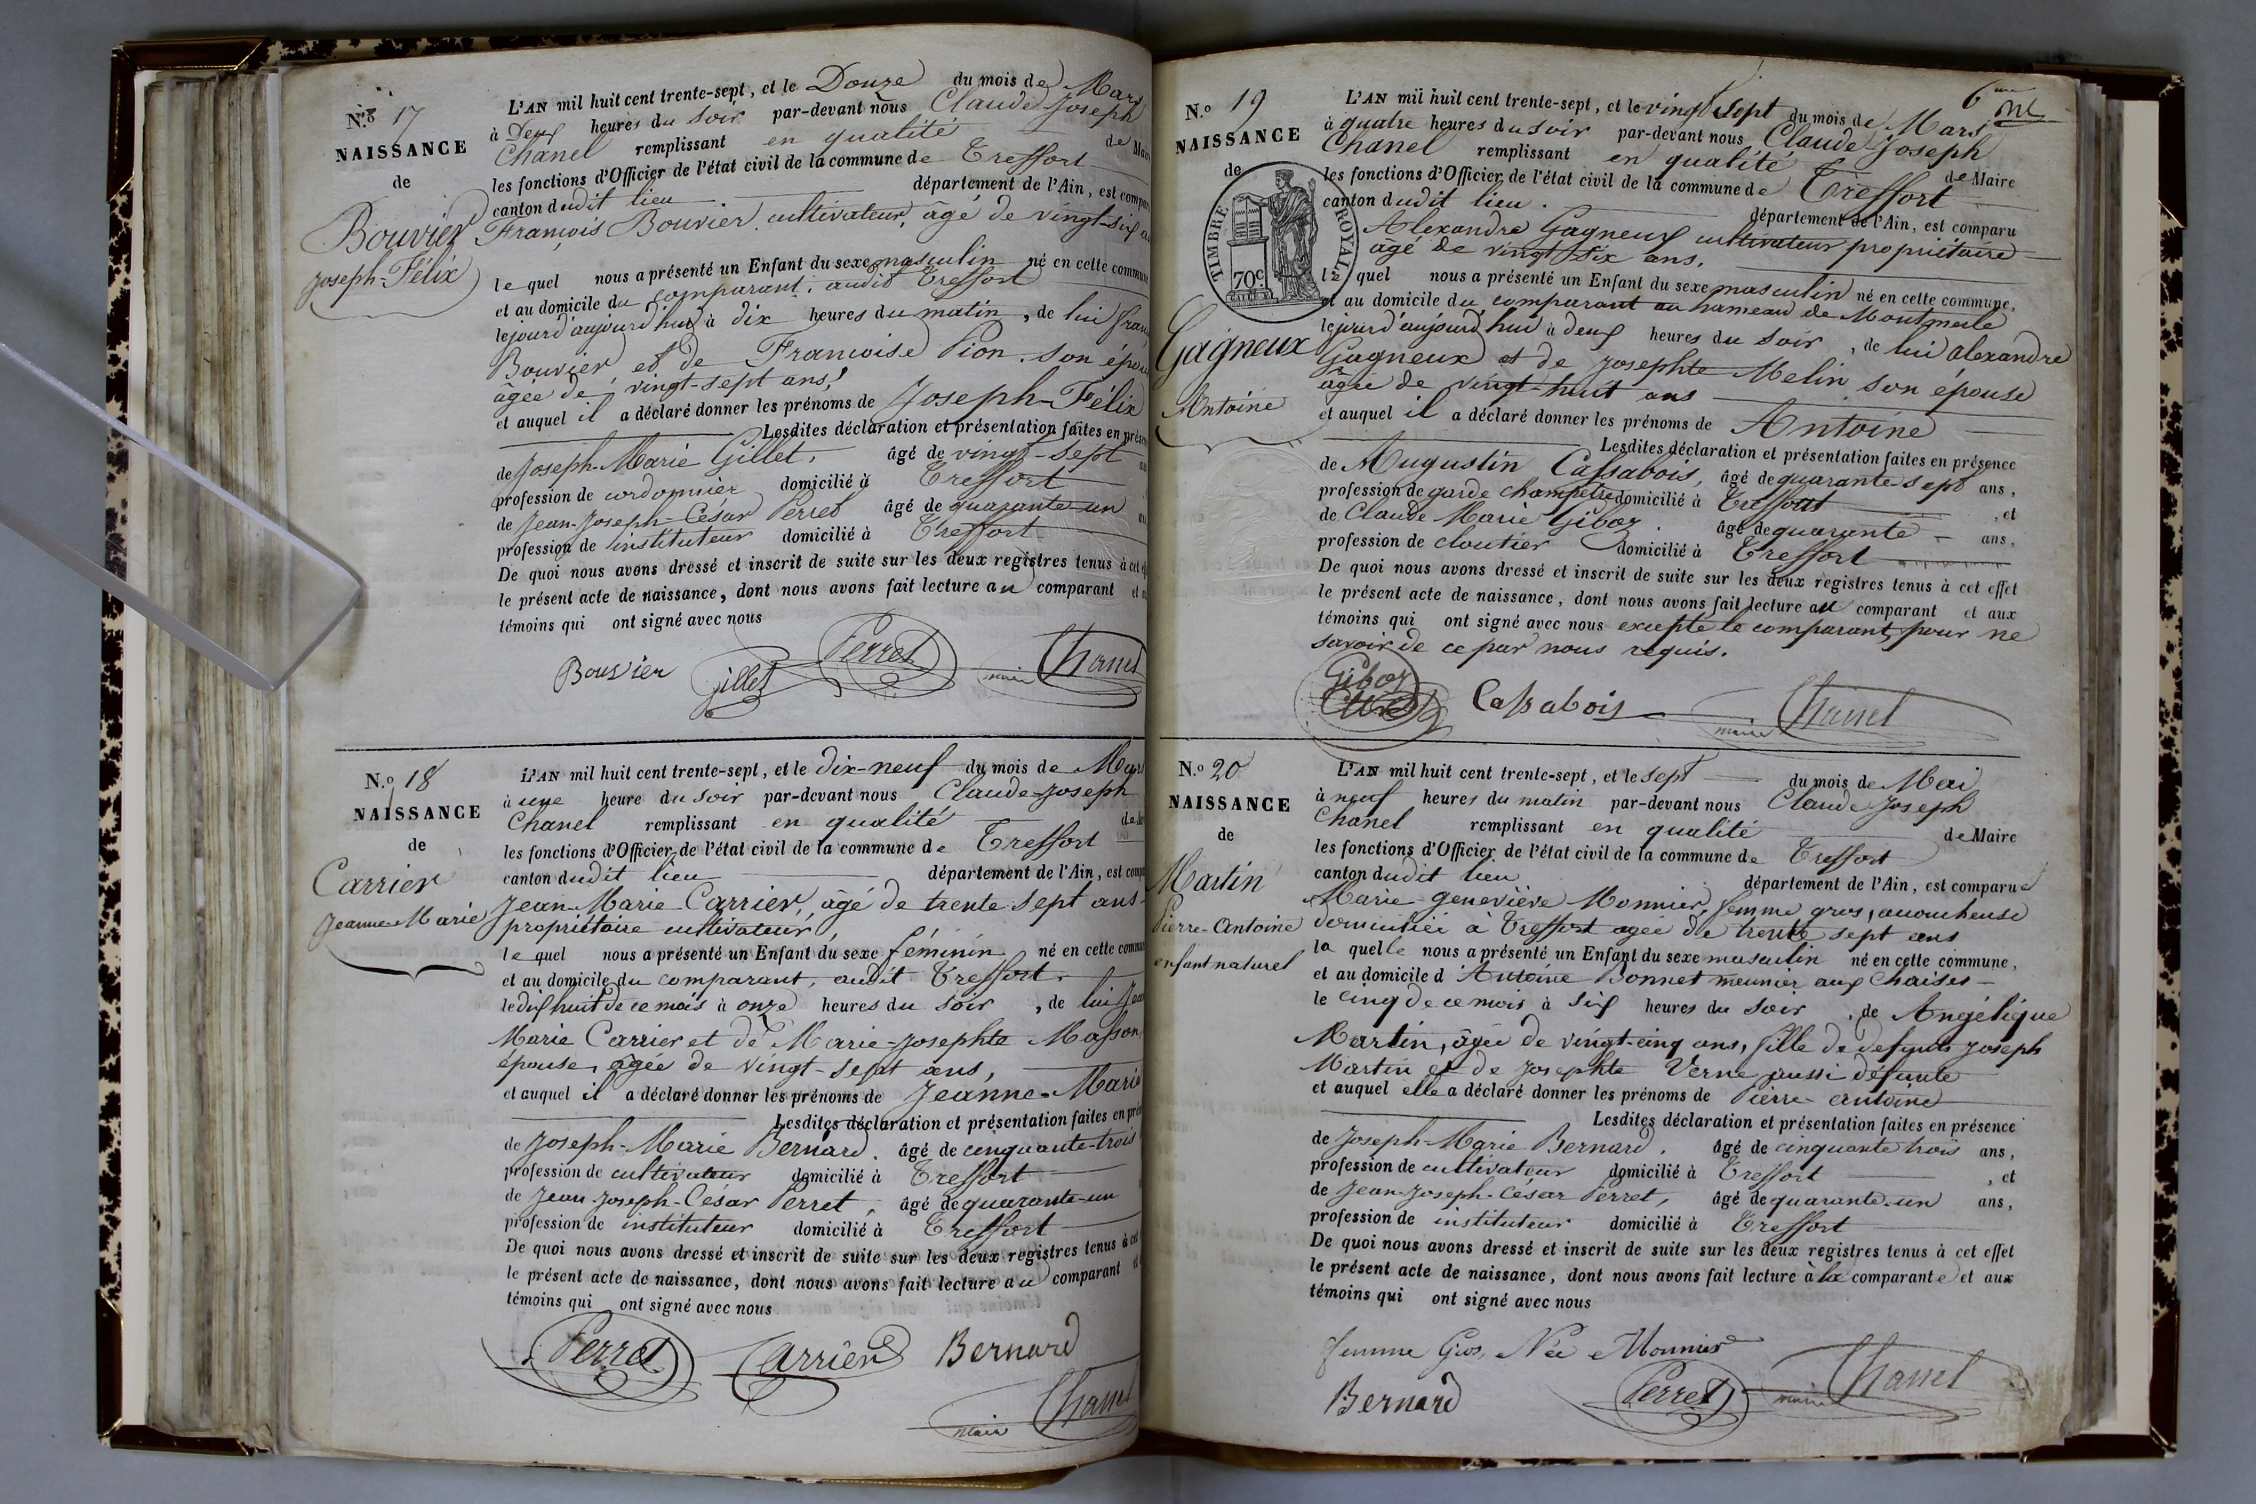 N.º 17
NAISSANCE
de
Bouvier
Joseph-Félix
L'AN mil huit cent trente-sept, et le Douze du mois de Mars
à Deux heures du soir par-devant nous Claude Joseph
Chanel remplissant en qualité de Maire
les fonctions d'Officier de l'état civil de la commune de Treffort
canton dudit lieu. département de l'Ain, est comparu
François Bouvier, cultivateur, âgé de vingt-six
lequel nous a présenté un Enfant du sexe masculin né en cette commune
et au domicile du comparant, audit Treffort
le jour d'aujourd'hui à dix heures du matin, de lui
Bouvier et de Francoise Pion son
âgée de vingt-sept ans,
et auquel il a déclaré donner les prénoms de Joseph-Félix
Lesdites déclaration et présentation faites en
de Joseph-Marie Gillet, âgé de vingt-sept
profession de cordonnier domicilié à Treffort
de Jean-Joseph-César Perret âgé de quarante-un
profession de instituteur domicilié à Treffort
De quoi nous avons dressé et inscrit de suite sur les deux registres tenus à cet
le présent acte de naissance, dont nous avons fait lecture au comparant et
témoins qui ont signé avec nous
Bouvier Gillet Perret maire Chanel
N.º 18
NAISSANCE
de
Carrier
Jeanne-Marie
L'AN mil huit cent trente-sept, et le dix-neuf du mois de Mars
à une heure du soir par-devant nous Claude-Joseph
Chanel remplissant en qualité de
les fonctions d'Officier de l'état civil de la commune de Treffort
canton dudit lieu département de l'Ain, est
Jean-Marie Carrier, âgé de trente sept ans
propriétaire cultivateur,
lequel nous a présenté un Enfant du sexe féminin né en cette
et au domicile du comparant, audit Treffort
le dix huit de ce mois à onze heures du soir, de lui Jean
Marie Carrier et de Marie-Josephte Masson
épouse, âgée de vingt-sept ans,
et auquel il a déclaré donner les prénoms de Jeanne-Marie
Lesdites déclaration et présentation faites en
de Joseph-Marie Bernard. âgé de cinquante-trois
profession de cultivateur domicilié à Treffort
de Jean-Joseph-César Perret, âgé de quarante-un
profession de instituteur domicilié à Treffort
De quoi nous avons dressé et inscrit de suite sur les deux registres tenus à cet
le présent acte de naissance, dont nous avons fait lecture au comparant
témoins qui ont signé avec nous
Perret Carrier Bernard
maire Chanel
6
N.º 19
NAISSANCE
de
TIMBRE ROYAL
70c
Gagneux
Antoine
L'AN mil huit cent trente-sept, et le vingt sept du mois de Mars
à quatre heures du soir par-devant nous Claude Joseph
Chanel remplissant en qualité de Maire
les fonctions d'Officier de l'état civil de la commune de Treffort
canton dudit lieu. département de l'Ain, est comparu
Alexandre Gagneux cultivateur propriétaire
âgé de vingt-six ans.
lequel nous a présenté un Enfant du sexe masculin né en cette commune,
et au domicile du comparant au hameau de Montmerle
le jour d'aujourd'hui à deux heures du soir, de lui alexandre
Gagneux et de Josephte Melin son épouse
âgée de vingt-huit ans
et auquel il a déclaré donner les prénoms de Antoine
Lesdites déclaration et présentation faites en présence
de Augustin Cassabois, âgé de quarante-sept ans,
profession de garde champêtre domicilié à Treffort, et
de Claude Marie Giboz. âgé de quarante ans,
profession de cloutier domicilié à Treffort
De quoi nous avons dressé et inscrit de suite sur les deux registres tenus à cet effet
le présent acte de naissance, dont nous avons fait lecture au comparant et aux
témoins qui ont signé avec nous excepté le comparant, pour ne
savoir de ce par nous requis.
Giboz Cassabois maire Chanel
N.º 20
NAISSANCE
de
Martin
Pierre-Antoine
enfant naturel
L'AN mil huit cent trente-sept, et le sept du mois de Mai
à neuf heures du matin par-devant nous Claude Joseph
Chanel remplissant en qualité de Maire
les fonctions d'Officier de l'état civil de la commune de Treffort
canton dudit lieu département de l'Ain, est comparue
Marie-geneviève Monnier, femme gros, accoucheuse
domiciliée à Treffort agée de trente sept ans
laquelle nous a présenté un Enfant du sexe masculin né en cette commune,
et au domicile d'Antoine Bonnet meunier aux Chaises
le cinq de ce mois à six heures du soir, de Angélique
Martin, âgée de vingt-cinq ans, fille de defunts Joseph
Martin et de Josephte Verne aussi défunte
et auquel elle a déclaré donner les prénoms de Pierre-antoine
Lesdites déclaration et présentation faites en présence
de Joseph-Marie Bernard. âgé de cinquante trois ans,
profession de cultivateur domicilié à Treffort, et
de Jean-Joseph-César Perret, âgé de quarante-un ans,
profession de instituteur domicilié à Treffort
De quoi nous avons dressé et inscrit de suite sur les deux registres tenus à cet effet
le présent acte de naissance, dont nous avons fait lecture à la comparante et aux
témoins qui ont signé avec nous
femme Gros, Née Monnier
Bernard Perret maire Chanel